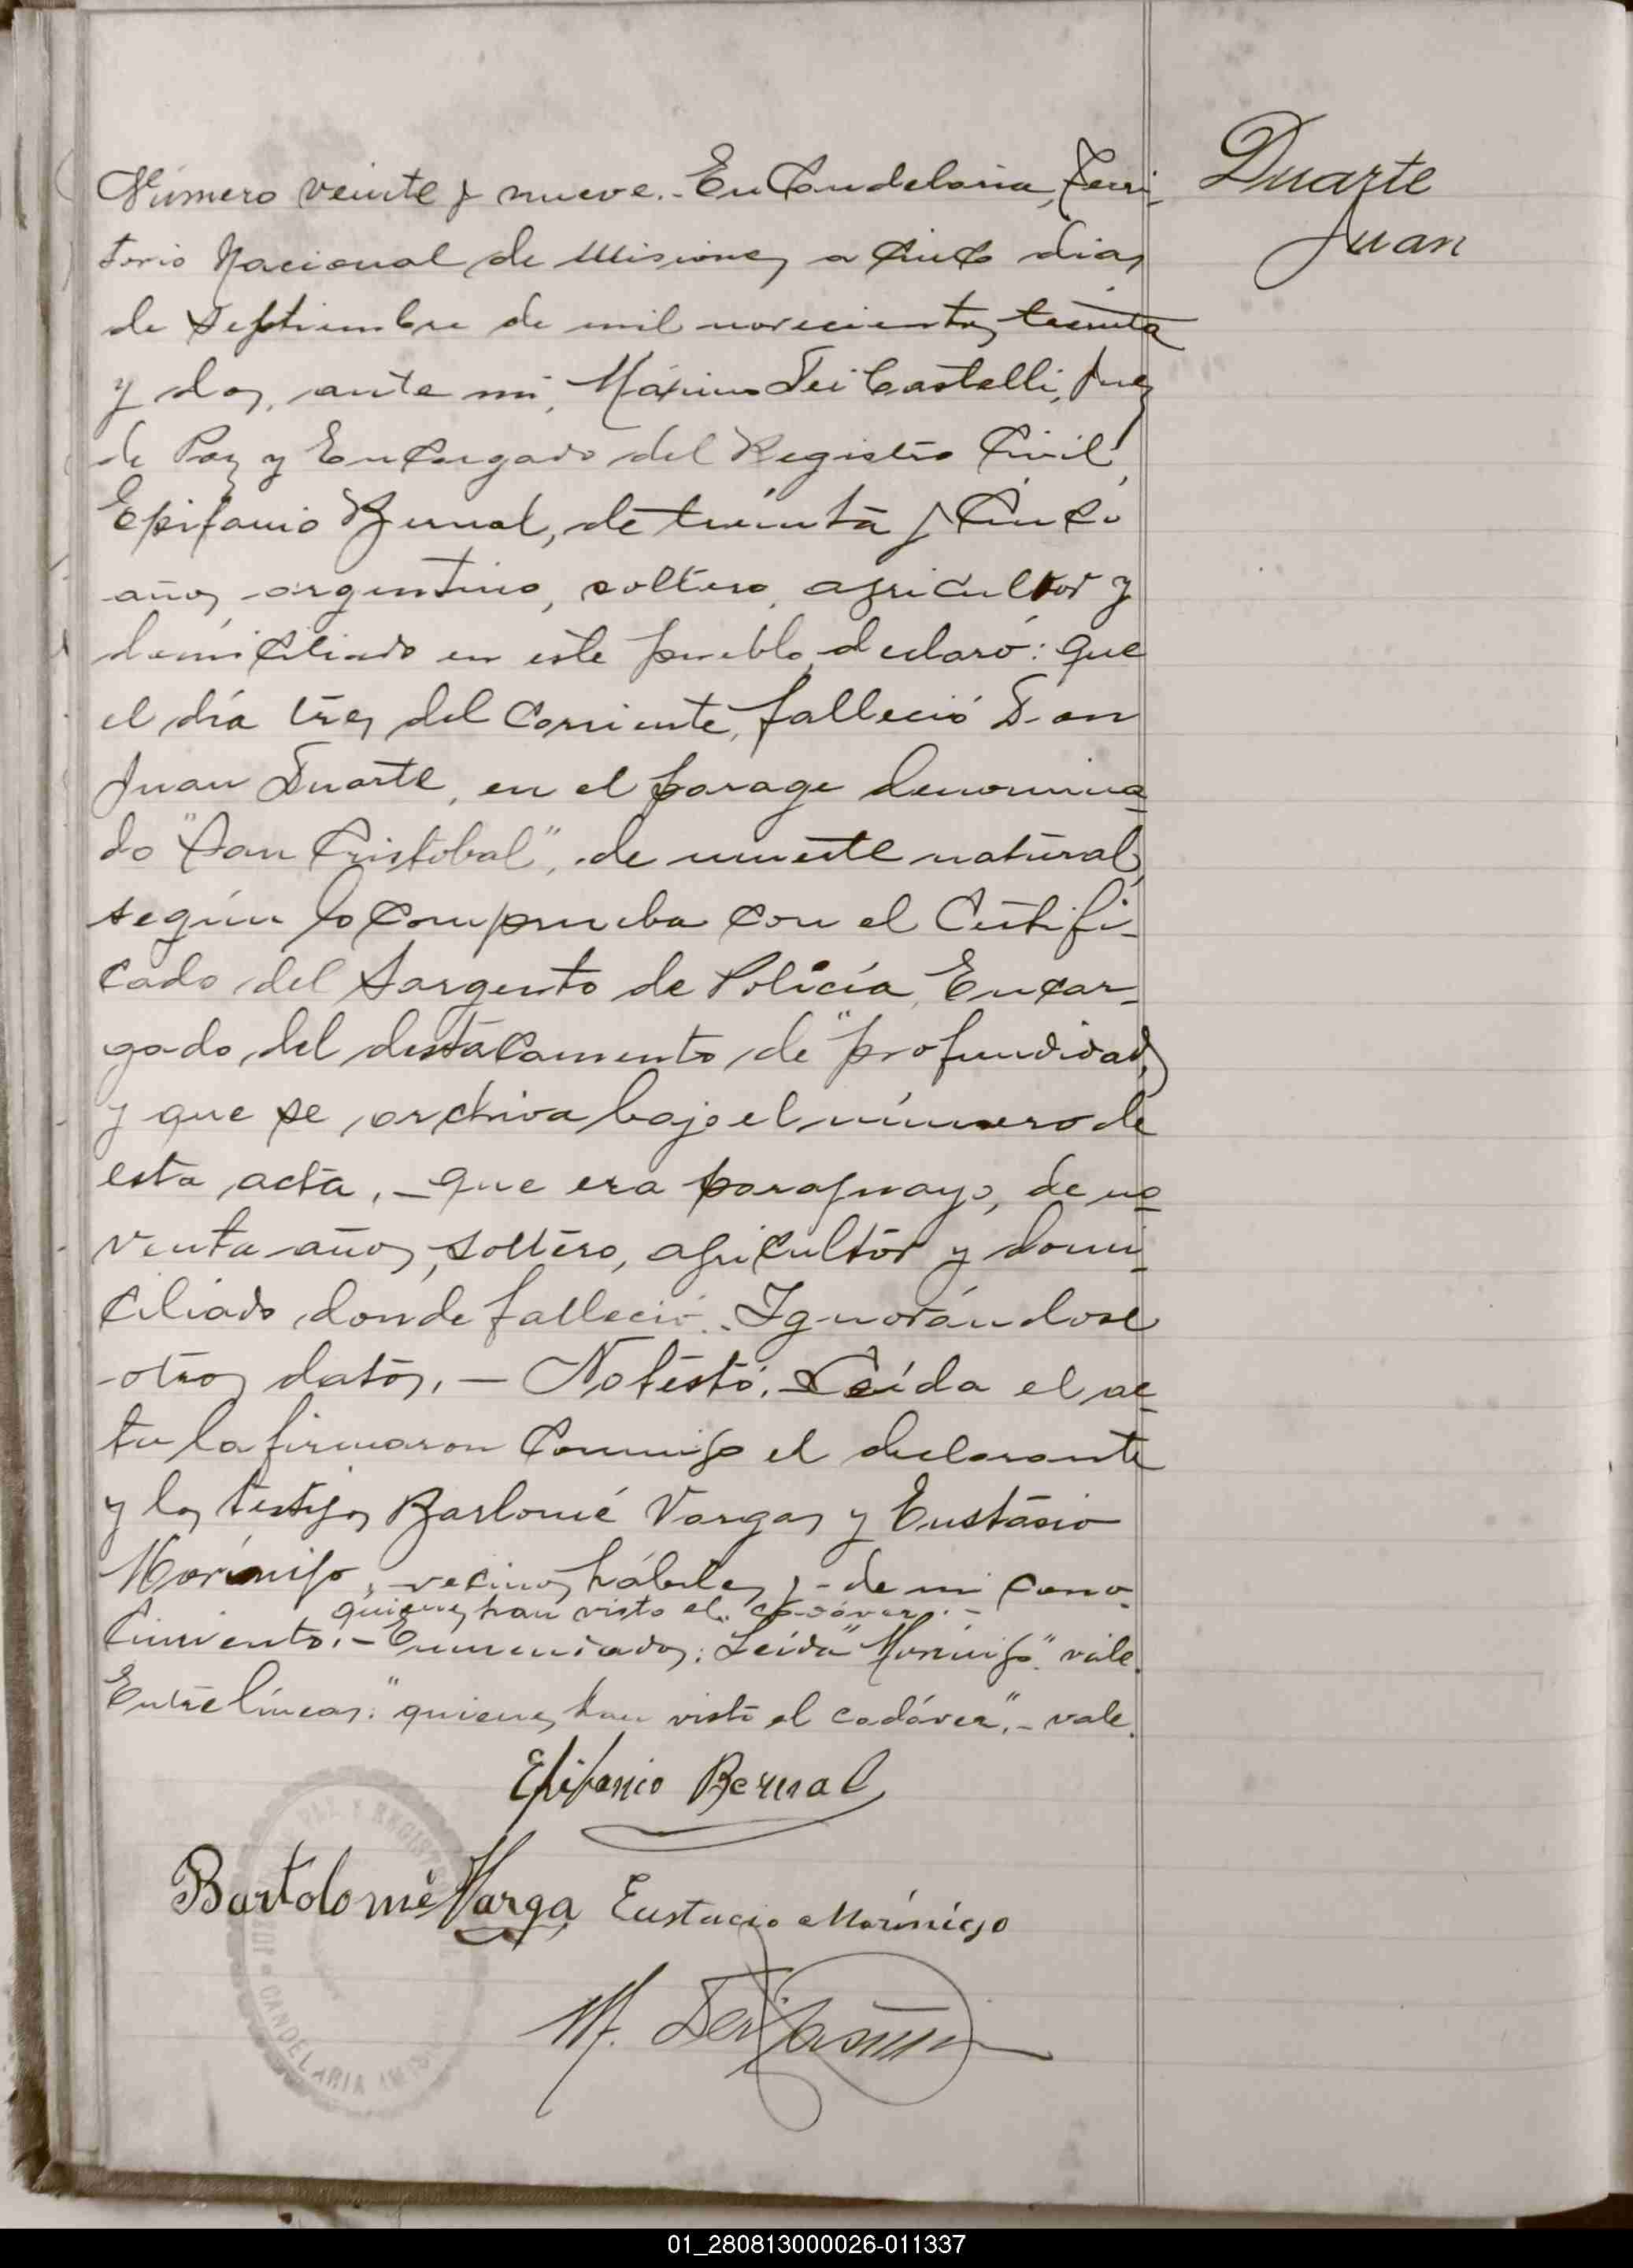 Número veinte y nueve.- En Candelaria, Terri-
torio Nacional de Misiones, a cinco dias
de Septiembre de mil novecientos treinta
y dos, ante mi, Máximo Dei Castelli, Juez
de Paz y Encargado del Registro Civil,
Epifanio Bernal, de treinta y cinco
años, argentino, soltero, agricultor y
domiciliado en este pueblo, declaró: que
el día tres del corriente, falleció Don
Juan Duarte, en el parage denomina-
do "San Cristobal", de muerte natural,
según lo comprueba con el Certifi-
cado del Sargento de Policía, Encar-
gado del destacamento de "profundidad",
y que se archiva bajo el número de
esta acta, - que era paraguayo, de no-
venta años, soltero, agricultor y domi-
ciliado donde falleció.- Ignorándose
otros datos. - No testó. - Leída el ac-
ta la firmaron conmigo el declarante
y los testigos Barlomé Vargas y Eustasio
Morínigo, vecinos hábiles y de mi cono-
quienes han visto el cadáver. -
cimiento. - Enmendados: Leída" Morínigo". vale.
Entrelíneas: "quienes han visto el cadáver". - vale.
Epifanio Bernal
Bartolomé Varga Eustacio Morínigo
M. Dei Castelli
Duarte
Juan
PAZ Y REGIST
CANDELARIA
01_280813000026-011337